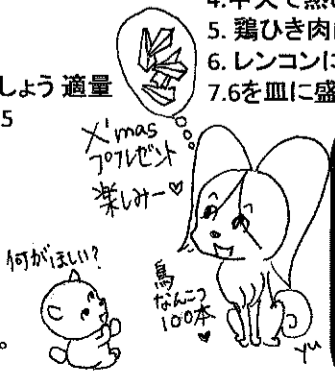 4.中火で熱
5. 鶏ひき肉
6. レンコンに
7.6を皿に盛
しょう 適量
5
X'mas
プレゼント
楽しみー♥
何がほしい?
鳥
なんこつ
100本
♥
。
yu